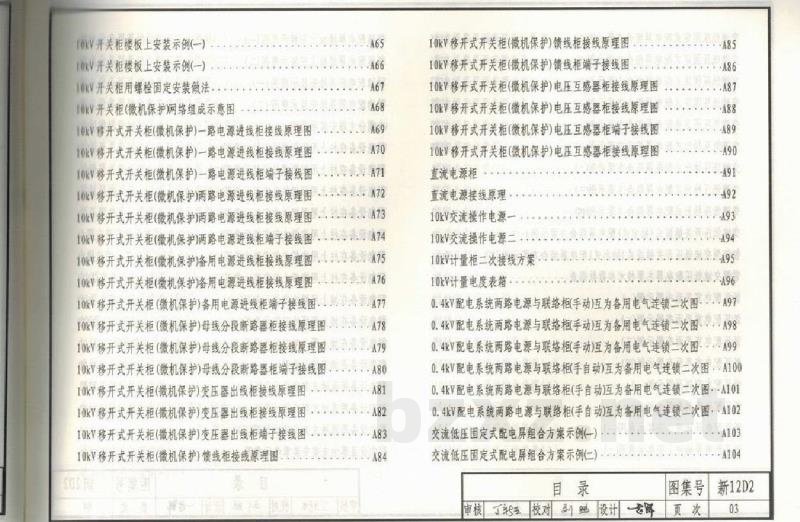 10kV开关柜楼板上安装示例(一) A65
10kV开关柜楼板上安装示例(一) A66
10kV开关柜用螺栓固定安装做法 A67
10kV开关柜(微机保护)网络组成示意图 A68
10kV移开式开关柜(微机保护)一路电源进线柜接线原理图 A69
10kV移开式开关柜(微机保护)一路电源进线柜接线原理图 A70
10kV移开式开关柜(微机保护)一路电源进线柜端子接线图 A71
10kV移开式开关柜(微机保护)两路电源进线柜接线原理图 A72
10kV移开式开关柜(微机保护)两路电源进线柜接线原理图 A73
10kV移开式开关柜(微机保护)两路电源进线柜端子接线图 A74
10kV移开式开关柜(微机保护)备用电源进线柜接线原理图 A75
10kV移开式开关柜(微机保护)备用电源进线柜接线原理图 A76
10kV移开式开关柜(微机保护)备用电源进线柜端子接线图 A77
10kV移开式开关柜(微机保护)母线分段断路器柜接线原理图 A78
10kV移开式开关柜(微机保护)母线分段断路器柜接线原理图 A79
10kV移开式开关柜(微机保护)母线分段断路器柜端子接线图 A80
10kV移开式开关柜(微机保护)变压器出线柜接线原理图 A81
10kV移开式开关柜(微机保护)变压器出线柜接线原理图 A82
10kV移开式开关柜(微机保护)变压器出线柜端子接线图 A83
10kV移开式开关柜(微机保护)馈线柜接线原理图 A84
10kV移开式开关柜(微机保护)馈线柜接线原理图 A85
10kV移开式开关柜(微机保护)馈线柜端子接线图 A86
10kV移开式开关柜(微机保护)电压互感器柜接线原理图 A87
10kV移开式开关柜(微机保护)电压互感器柜接线原理图 A88
10kV移开式开关柜(微机保护)电压互感器柜端子接线图 A89
10kV移开式开关柜(微机保护)电压互感器柜接线原理图 A90
直流电源柜 A91
直流电源接线原理 A92
10kV交流操作电源一 A93
10kV交流操作电源二 A94
10kV计量柜二次接线方案 A95
10kV计量电度表箱 A96
0.4kV配电系统两路电源与联络柜(手动)互为备用电气连锁二次图 A97
0.4kV配电系统两路电源与联络柜(手动)互为备用电气连锁二次图 A98
0.4kV配电系统两路电源与联络柜(手动)互为备用电气连锁二次图 A99
0.4kV配电系统两路电源与联络柜(手自动)互为备用电气连锁二次图 A100
0.4kV配电系统两路电源与联络柜(手自动)互为备用电气连锁二次图 A101
0.4kV配电系统两路电源与联络柜(手自动)互为备用电气连锁二次图 A102
交流低压固定式配电屏组合方案示例(一) A103
交流低压固定式配电屏组合方案示例(二) A104
目录 图集号 新12D2
审核 校对 设计 页次 03